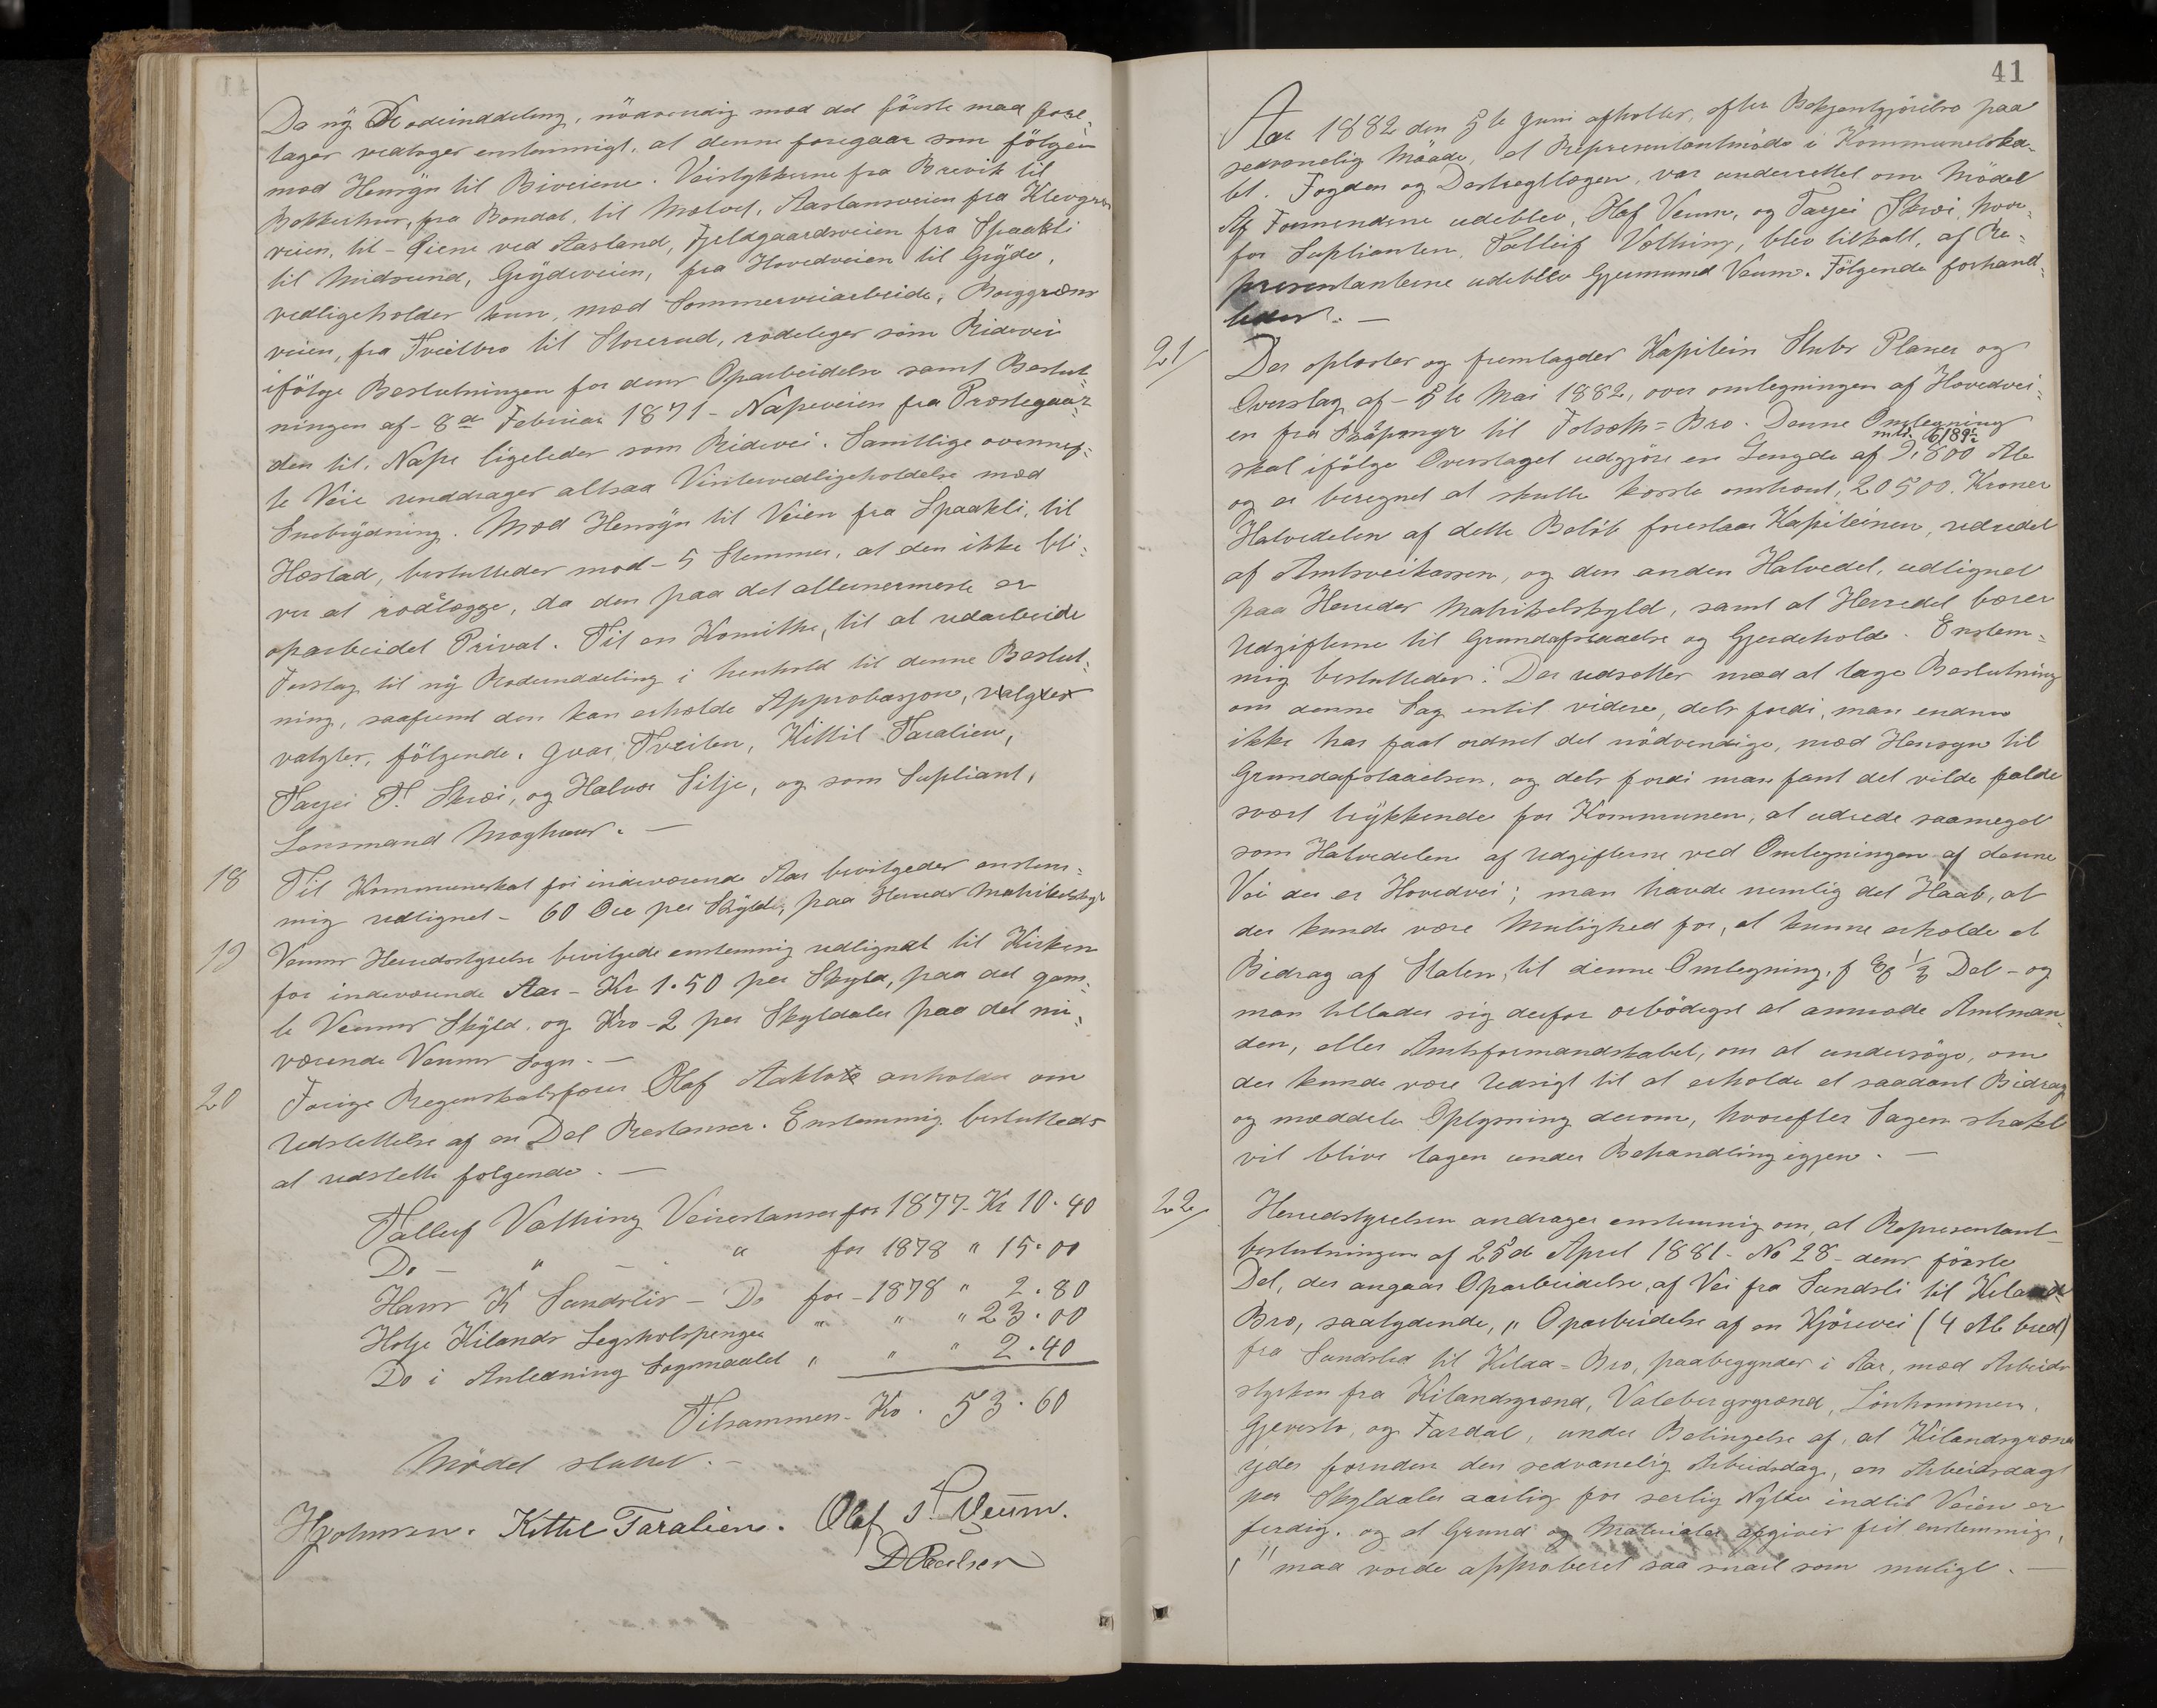 Da ny Rodeinddeling, nödvendig med det förste maa fore-
tages vedtoges enstemmigt, at denne foregaar som fölger
med Hensyn til Biveiene. Veistykkerne fra Brevik til
Bakkerhus, fra Bondal, til Molvet, Aaslansveien fra Klevgren
veien, til - Øiene ved Aasland, Fjeldgaardsveien fra Spaakli
til Midsund, Gröydeveien, fra Hovedveien til Gröyde,
vedligeholdes kun, med Sommerveiarbeide, Borggræns
veien, fra Tveitbro til Storerud, rodeleges som Ridevei
ifölge Beslutningen for dens Oparbeidelse samt Beslut-
ningen af - 8de Februar 1871 - Napeveien fra Præstegaar-
den til, Nape ligeledes som Ridevei. Samtlige ovennef-
te Veie unddrages altsaa Vintervedligeholdelse med
Snebrydning. Med Hensyn til Veien fra Spaakli, til
Høstad, besluttedes mod - 5 Stemmer, at den ikke bli-
ver at rodlægge, da den paa det allernermeste er
oparbeidet Privat. Til en Komitke, til at udarbeide
Forslag til ny Rodeinddeling i henhold til denne Beslut-
ning, saafremt den kan erholde Approbasjon, valgtes
valgtes, fölgende. Ivar Tveiten, Kittil Taralien,
Tarjei T. Skrei, og Halvor Silje, og som Supliant,
Lensmand Moghuus. —
18 Til Kommuneskat for indeværende Aar bevilgedes enstem-
mig udlignet - 60 Øre per Skyld, paa Herreds Matrikelsky
19 Veums Herredsstyrelse bevilgede enstemmig udlignet til Kirken
for indeværende Aar - Kr 1.50 per Skyld, paa det gam-
le Veums Skyld. og Kro - 2 per Skyldaler paa det nu-
værende Veums Sogn. —
20 Forige Regnskabsförer Olaf Aakloto anholder om
Udslettelse af en Del Restanser. Enstemmig besluttedes
at udslette folgende. —
Tallef Vathing Veirestanser for 1877 - Kr 10.40
Do — " — " for 1878 " 15.00
Hans K Sundsliv - Do for - 1878 " 2.80
Holje Kilands Legsholspenger " " " 23.00
Do i Anledning Sogsmaalet " " " 2.40
Tilsammen - Kr. 53.60
Mödet sluttet. —
Hjohnsen. Kittel Taralien. Olaf S. Veum.
D Paulsen
41
Aar 1882 den 5te Juni afholtes, efter Bekjentgjörelse paa
sedvanelig Maade, et Representantmöde i Kommunelska-
let. Fogden og Destregtlægen, var underrettet om Mödet
Af Formendene udeblev, Olaf Veum, og Tarjei Skrei, hvor-
for Suplianten, Talleif Vathing, blev tilkalt, af Re-
presentanterne udeblev Gjermund Veum. Fölgende forhand-
ledes. —
21/ Der oplæstes og fremlagdes Kapitein Stubs Planer og
Overslag af - 5te Mai 1882, over omlegningen af Hovedvei-
en fra Skåpmyr til Folsæth = Bro. Denne Omlegning
mtr. 6189½
skal ifölge Overslaget udgjöre en Lengde af 9,800 Al
og er beregnet at skulle kosste omtrent, 20500. Kroner
Halvedelen af dette Belöb foreslaar Kapiteinen, udredet
af Amtsveikassen, og den anden Halvedel, udlignet
paa Herreds Matrikelskyld, samt at Herredet bærer
Udgifterne til Grundafstaaelse og Gjerdehold. Enstem-
mig besluttedes: Der udsettes med at tage Beslutning
om denne Sag intil videre, dels fordi, man endnu
ikke har faat ordnet det nödvendige, med Hensyn til
Grundafstaaelsen, og dels fordi man fant det vilde falde
svært trykkende for Kommunen, at udrede saameget
som Halvedelen af Udgifterne ved Omlegningen af denne
Vei der er Hovedvei; man havde nemlig det Haab, at
der kunde være Mulighed for, at kunne erholde et
Bidrag af Staten, til denne Omlegning, f Ex ⅓ Del - og
man tillader sig derfor erbödigst at anmode Amtman-
den, eller Amtsformandskabet, om at undersöge, om
der kunde være Udsigt til at erholde et saadant Bidrag
og meddele Oplysning derom, hvorefter Sagen strakt
vil blive tagen under Behandling igjen. —
22/ Herredstyrelsen andrager enstemmig om, at Representant-
beslutningen af 25de April 1881 - No 28 - dens förste
Del, der angaar Oparbeidelse, af Vei fra Sundsli til Kiland
Bro, saalydende, " Oparbeidelse af en Kjörevei (4 Al bred)
fra Sundsled til Kilaa = Bro, paabegyndes i Aar, med Arbeids
styrken fra Kilandsgrænd, Valebergsgrænd, Lönhommen,
Gjevesto, og Fardal, under Betingelse af, at Kilandsgrænd
ydes foruden den sedvanelig Arbeidsdag, en Arbeidsdag
per Skyldaler aarlig for serlig Nytte indtil Veien er
ferdig. og at Grund og Materialer afgives frit enstemmig,
" maa vorde approberet saa snart som muligt. —